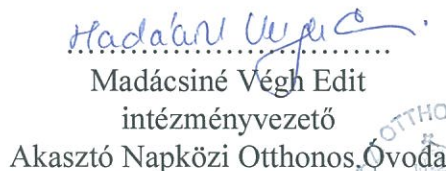 Madácsiné Végh Edit
intézményvezető
Akasztó Napközi Otthonos Óvoda